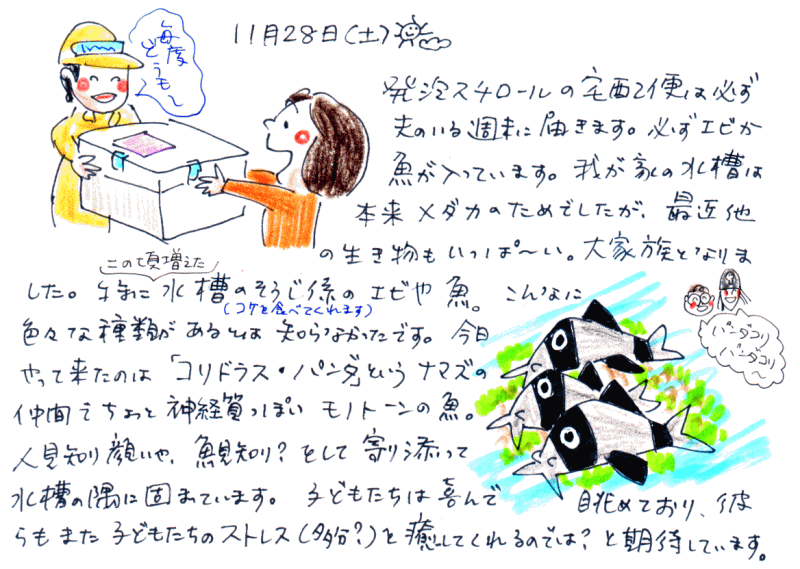 11月28日(土)
毎度
どうも〜
発泡スチロールの宅配便は必ず
夫のいる週末に届きます。必ずエビか
魚が入っています。我が家の水槽は
本来メダカのためでしたが、最近他
の生き物もいっぱ〜い。大家族となりま
この頃増えた
した。特に水槽のそうじ係のエビや魚。こんなに
(コケを食べてくれます)
色々な種類があるとは知らなかったです。今日
やって来たのは「コリドラス・パンダ」というナマズの
仲間でちょっと神経質っぽいモノトーンの魚。
パンダコリ
パンダコリ
人見知り顔いや、魚見知り?をして寄り添って
水槽の隅に固まっています。子どもたちは喜んで眺めており、彼
らもまた子どもたちのストレス(多分?)を癒してくれるのでは?と期待しています。